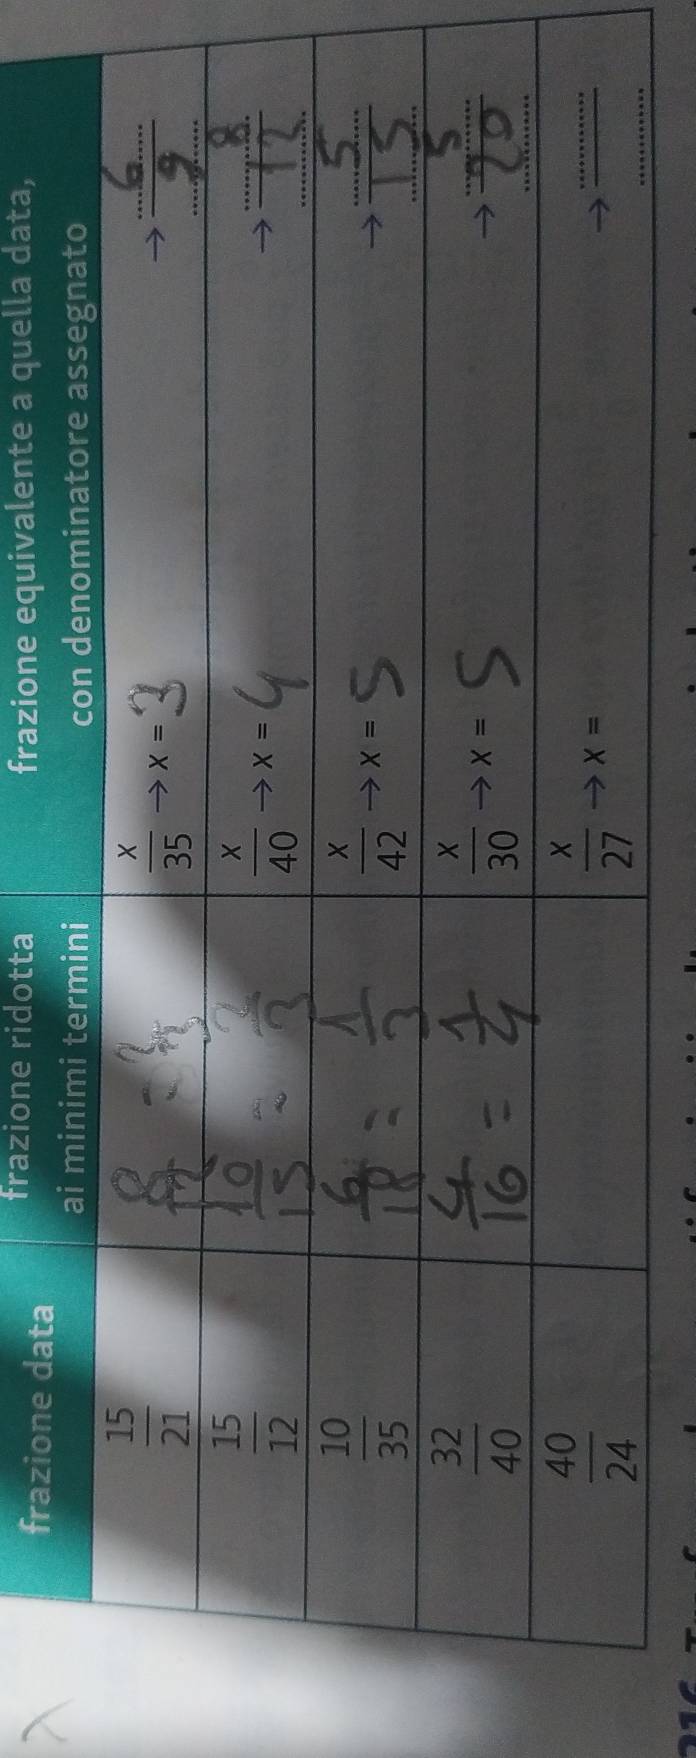 frazione data
frazione ridotta
ai minimi termini
frazione equivalente a quella data,
con denominatore assegnato
15/21
8/12 = 2/3
x/35 → x = 3 → 6/9
15/12
10/15 = 2/3
x/40 → x = 4 → 8/12
10/35
6/18 = 1/3
x/42 → x = 5 → 5/15
32/40
4/16 = 1/4
x/30 → x = 5 → 5/20
40/24
x/27 → x = → ......../........